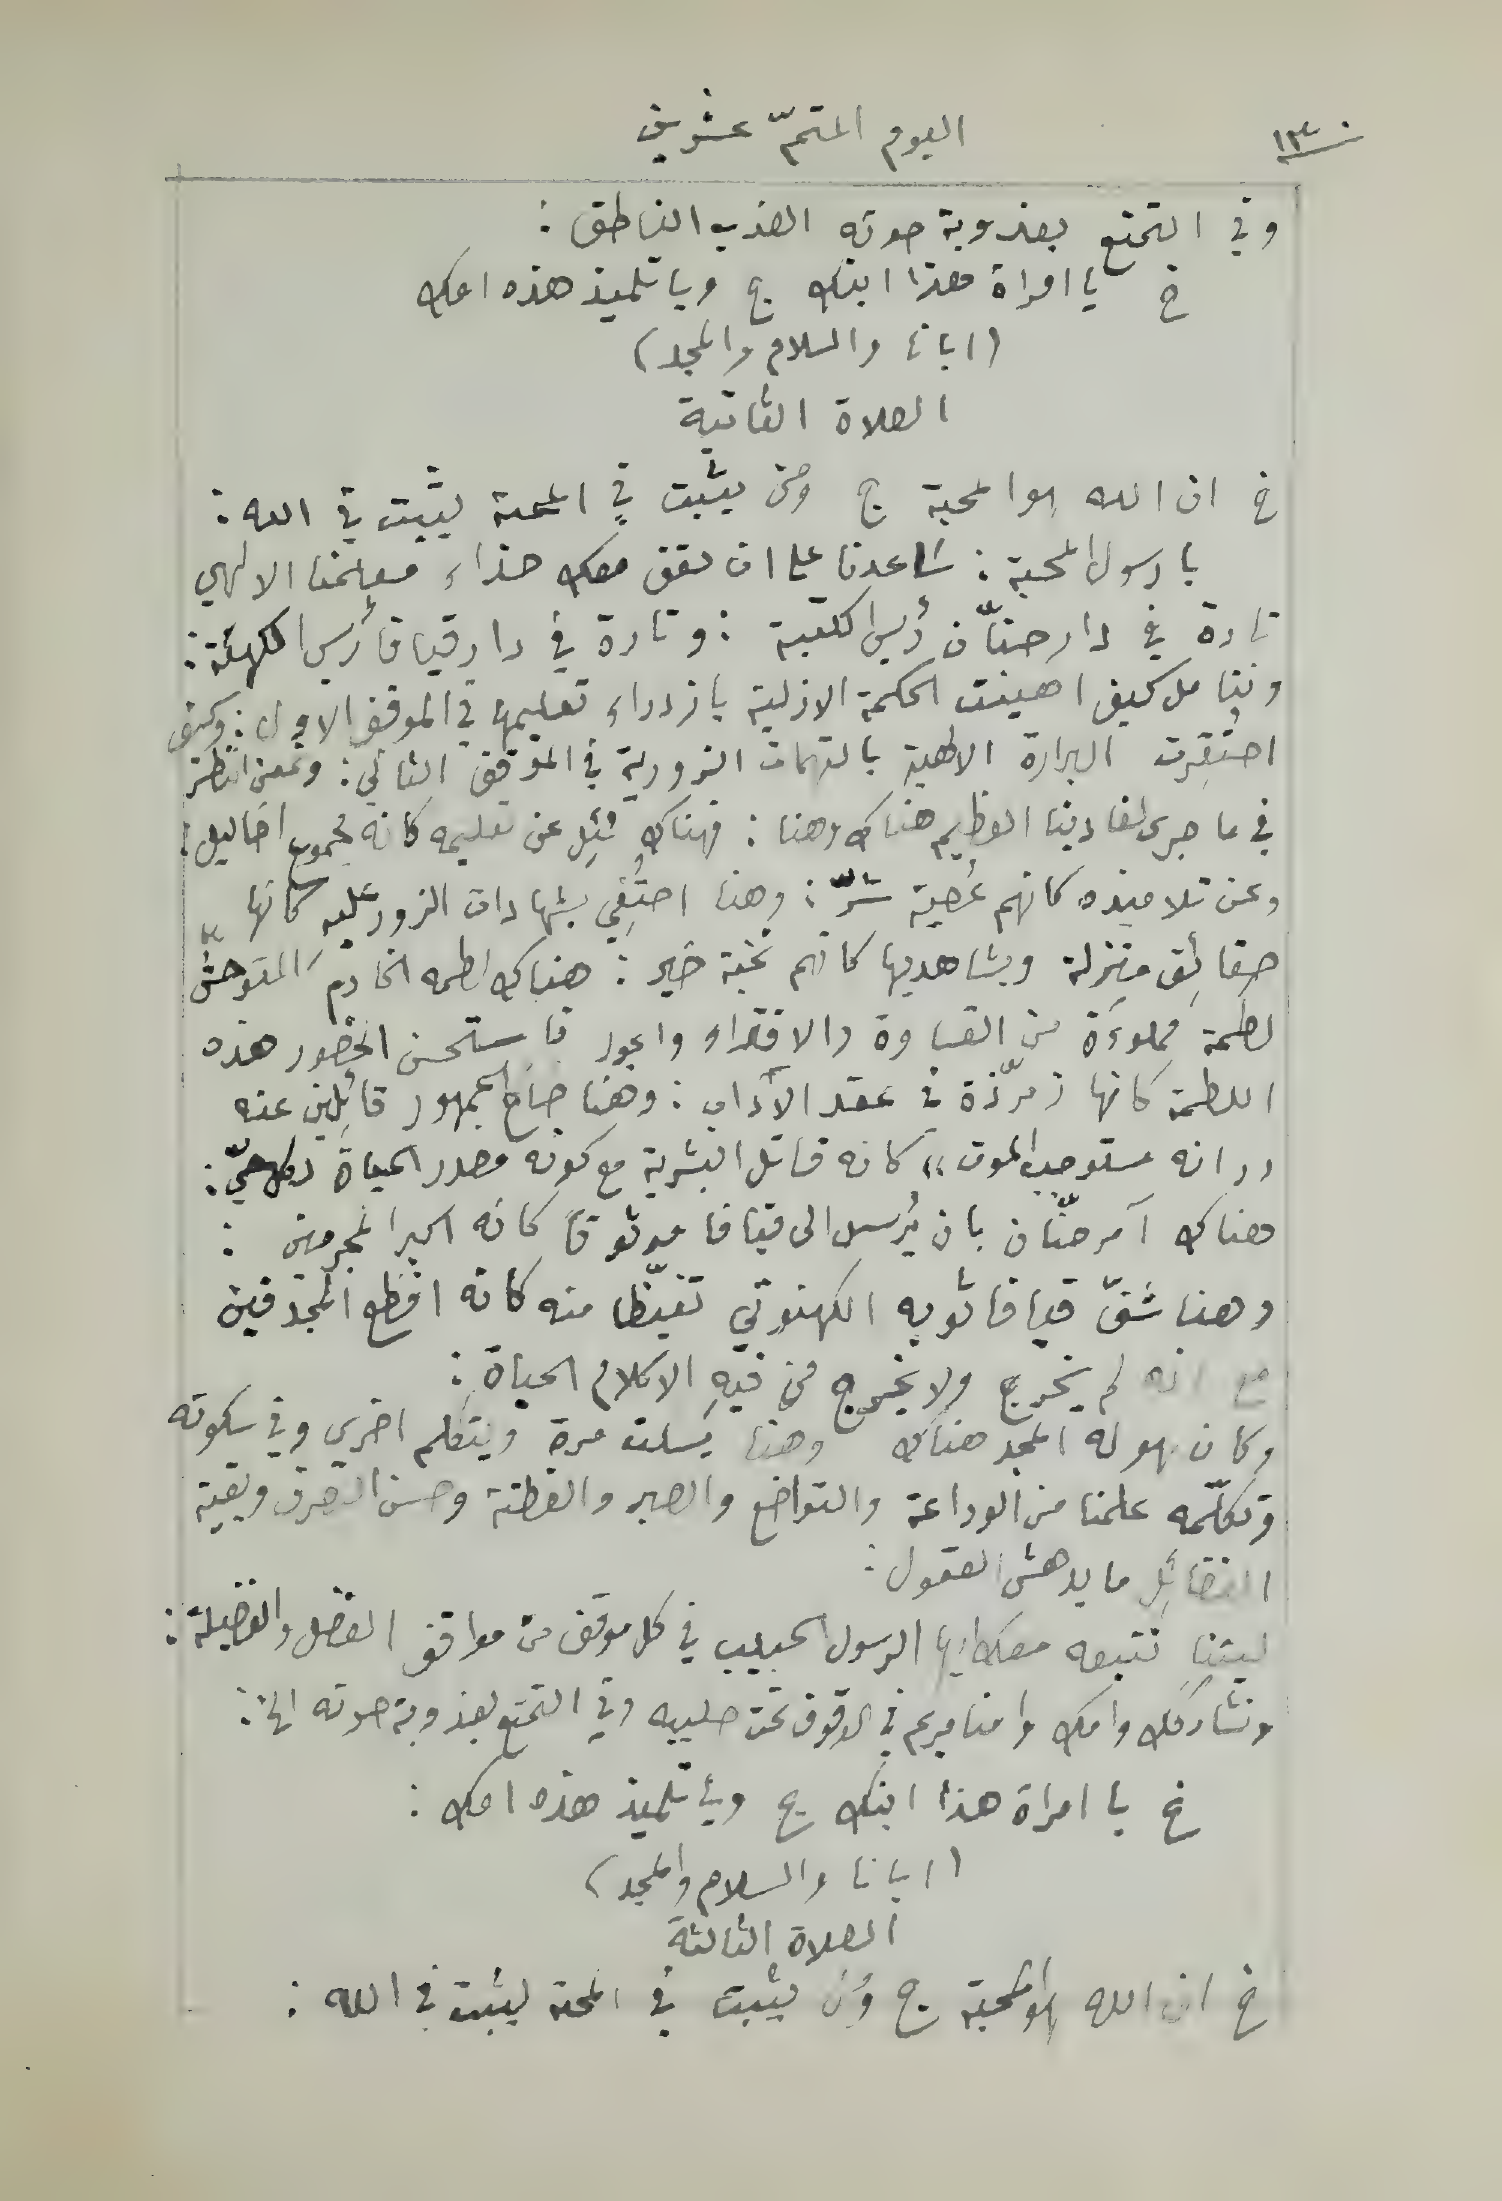 ١٣٠
اليوم المتمّ عشرين
وفي التمتع بعذوبة صوته العذب الناطق :
خ يا امراة هذا ابنك ج ويا تلميذ هذه امك
(ابانا والسلام والمجد)
الصلاة الثانية
خ ان الله هو المحبة ج ومن يثبت في المحبة يثبت في الله :
يا رسول المحبة : ساعدنا على ان نقف معك حذاء معلمنا الالهي
تارة في دار حنّان رئيس الكتبة : وتارة في دار قيافا رئيس الكهنة :
ونتامل كيف اهينت الحكمة الازلية بازدراء تعليمها في الموقف الاول : وكيف
احتُقِرت البرارة الالهية بالتهمات الزورية في الموقف الثاني : ونمعن النظر
في ما جرى لفادينا العظيم هناك وهنا : فهناك سُئِل عن تعليمه كانه مجموع اضاليل :
وعن تلاميذه كانهم عُصبة شرّ : وهنا احتُفِي بشهادات الزور عليه كانها
حقائق منزلة وبشاهديها كانهم نخبة خير : هناك لطمه الخادم المتوحّش
لطمة مملوءة من القساوة والافتراء والجور فاستحسن الحضور هذه
اللطمة كانها زمرّذة في عقد الآداب : وهنا ضاج الجمهور قائلين عنه
«انه مستوجب الموت» كانه قاتل البشرية مع كونه مصدر الحياة لكل حيّ :
هناك آمر حنّان بان يُرسل الى قيافا موثوقاً كانه اكبر المجرمين :
وهنا شقّ قيافا ثوبه الكهنوتي تغيّظا منه كانه افظع المجدفين
مع انه لم يخرج ولا يخرج من فيهِ الا كلام الحياة :
وكان هو له المجد هناك وهنا يسكت مرة ويتكلم اخرى وفي سكوته
وتكلّمه علمنا من الوداعة والتواضع والصبر والفطنة وحسن التصرف وبقية
الفضائل ما يدهش العقول :
ليتنا نتبعه معك ايها الرسول الحبيب في كل موقف من مواقف الفضل والفضيلة :
ونشاركك وامك وامنا مريم في الوقوف تحت صليبه وفي التمتع بعذوبة صوته الخ :
خ يا امراة هذا ابنك ج ويا تلميذ هذه امك :
(ابانا والسلام والمجد)
الصلاة الثالثة
خ ان الله هو المحبة ج ومن يثبت في المحبة يثبت في الله :